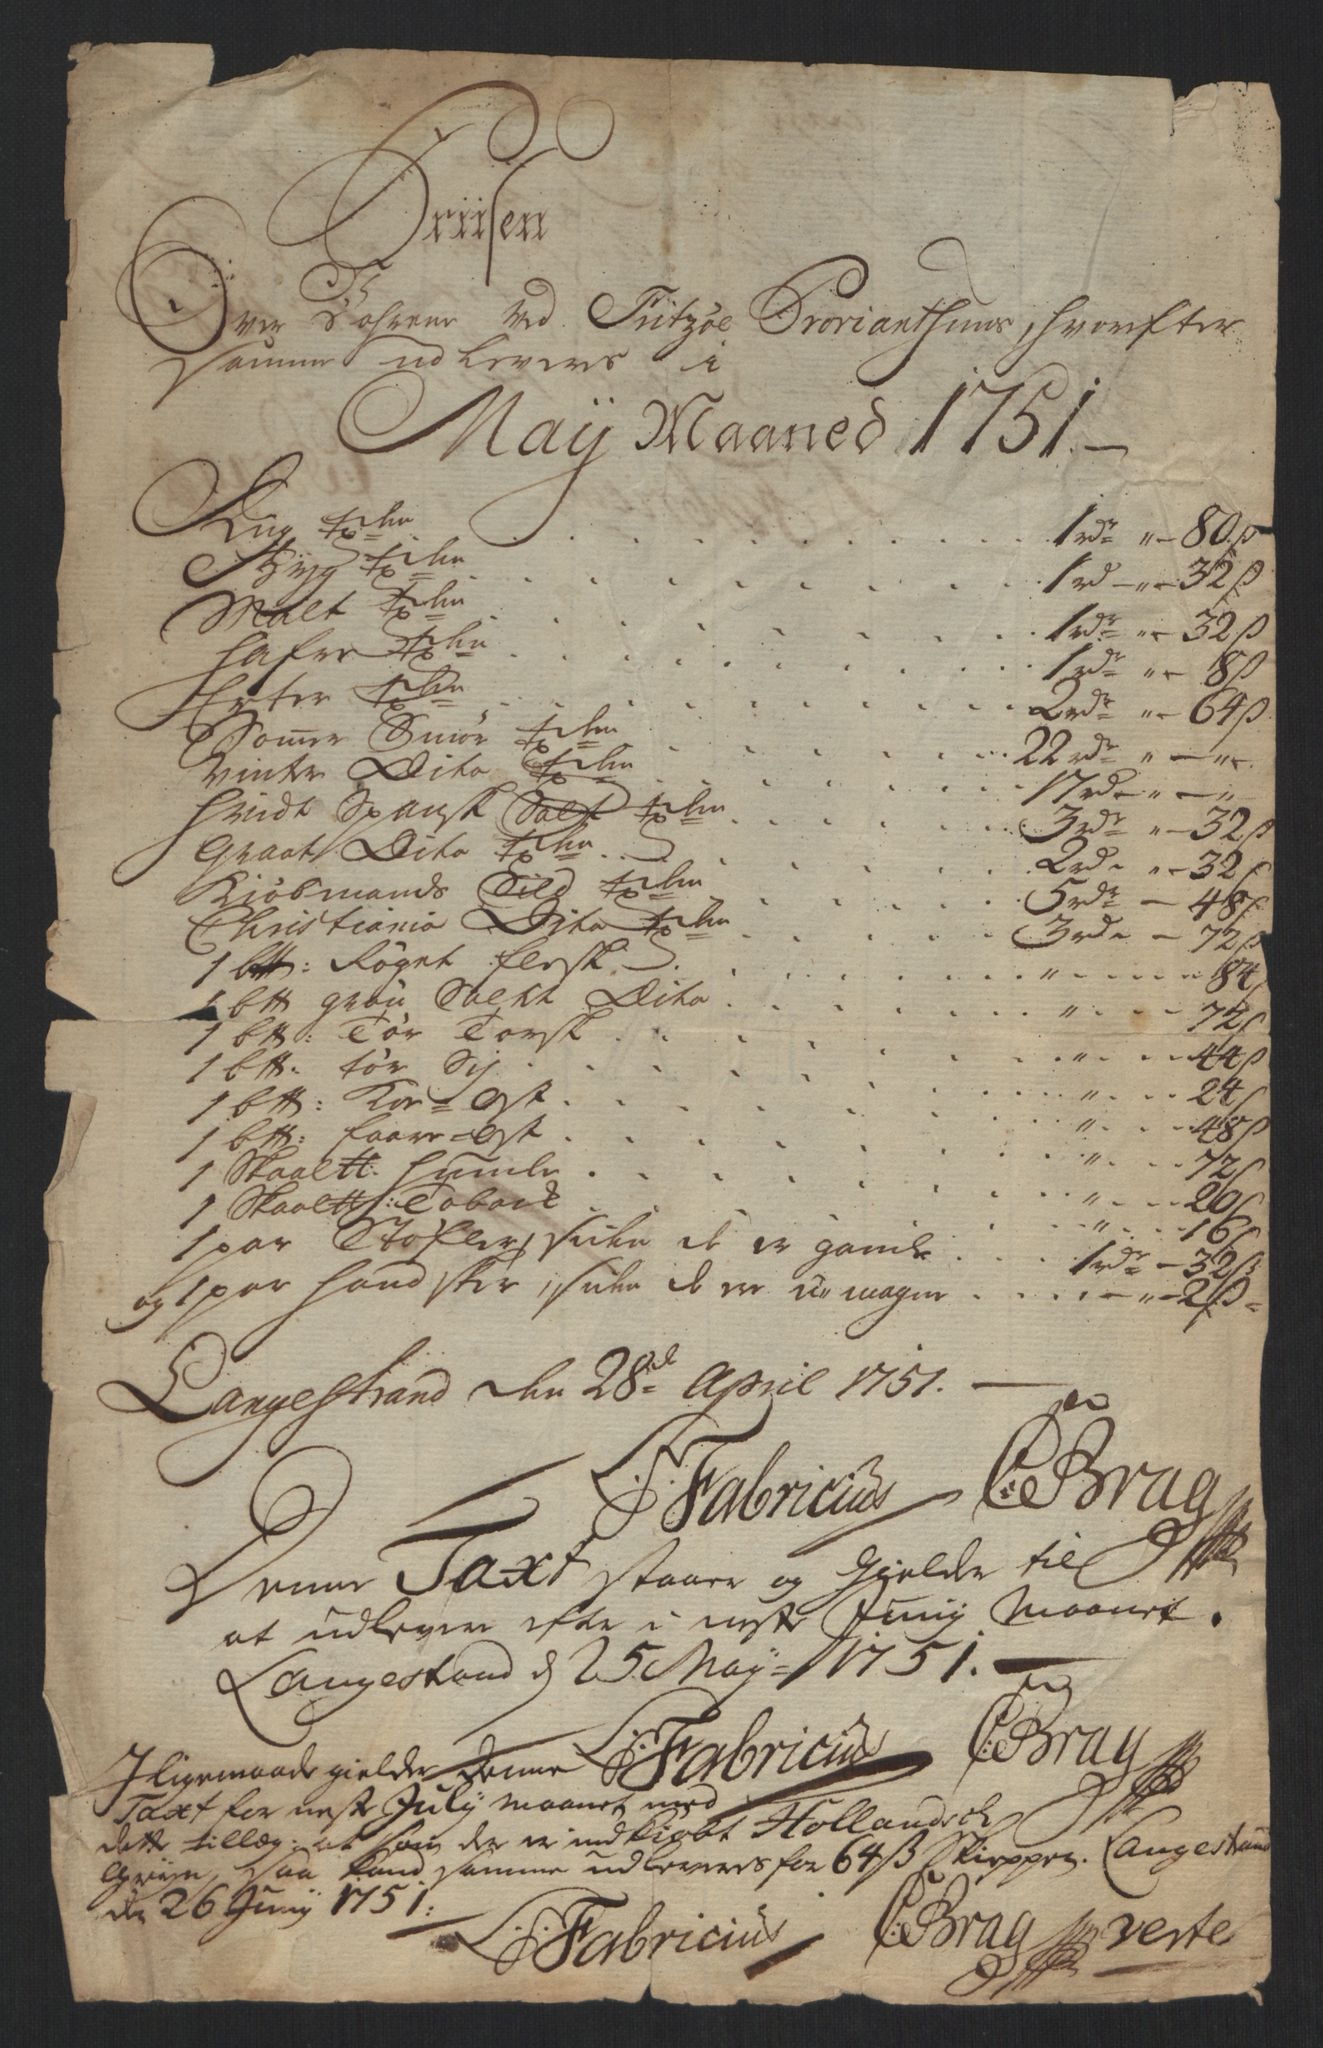 Priisen
Over Kohrene ved Fritzøe Proviantshuus, hvorefter
samme udleveres i
Maij Maaned 1751.—
Rug tden . . . 1 rdr „ — 80 ß
Byg tden . . . 1 rd — „ — 32 ß
Malt tden . . . 1 rdr „ — 32 ß
Hafre tden . . . 1 rdr „ — 8 ß
Erter tden . . . 2 rdr „ — 64 ß
Sommer Smør tden . . . 22 rdr „ — „ —
Vinter Dito tden . . . 17 rd — „ — „
Hvidt Spansk Salt tden . . . 3 rdr „ — 32 ß
Graat Dito tden . . . 2 rd „ — 32 ß
Kiøbmands Sild tden . . . 5 rdr — 48 ß
Christiania Dito tden . . . 3 rd — 72 ß
1 b℔: Røget flesk . . . „ — 84
1 b℔ grøn Saltt Dito . . . „ — 72 ß
1 b℔: Tør Torsk . . . „ — 44 ß
1 b℔. tør Sij . . . „ — 24 ß
1 b℔: Koe=Ost . . . „ — 48 ß
1 b℔: faare=Ost . . . „ — 72 ß
1 Skaal℔. Humle . . . „ — 20 ß
1 Skaal℔: Toback . . . „ — 16 ß
1 par Støfler, siden de er gamle . . . 1 rdr — 32 ß
og 1 par Handsker, siden de ere u-magne . . . — „ — 2 ß =
Langestrand den 28de April 1751. —
S: Fabricius C: Brag
Denne Taxt staaer og Gielder til
at udlevere efter i neste Junij Maanet.
Langestrand d 25 Maij = 1751. —
S: Fabricius C: Brag
Iligemaade gielder denne
Taxt for neste Julij maanet med
dette tillæg: at som der er indkiøbt Hollandsch
Gryn, saa kand samme udleveres for 64 ß Skieppen. Langestrand
den 26 Junij 1751:
S: Fabricius C: Brag verte